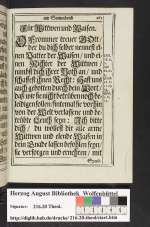 am Sonnabend
Für Wittwen und Waisen.
O Frommer treuer Gott/
der du dich selber nennest ei-
nen Vatter der Waisen / und ei-
nen Richter der Wittwen
nimbst dich ihrer Noth an / und
schaffest ihnen Recht: Hast uns
auch geboten durch dein Wort /
daß wir sie nicht betrüben noch be-
leidigen sollen/
von der Welt verlassene und be-
trübte Leuth seyn: Ich bitte
dich / du wollest dir alle arme
Wittwen und elende Waisen in
dein Gnade lassen befohlen seyn /
sie versorgen und ernehren / mit
Herzog August Bibliothek Wolfenbüttel
Signatur: 216.20 Theol.
http://diglib.hab.de/drucke/216-20-theol/start.htm